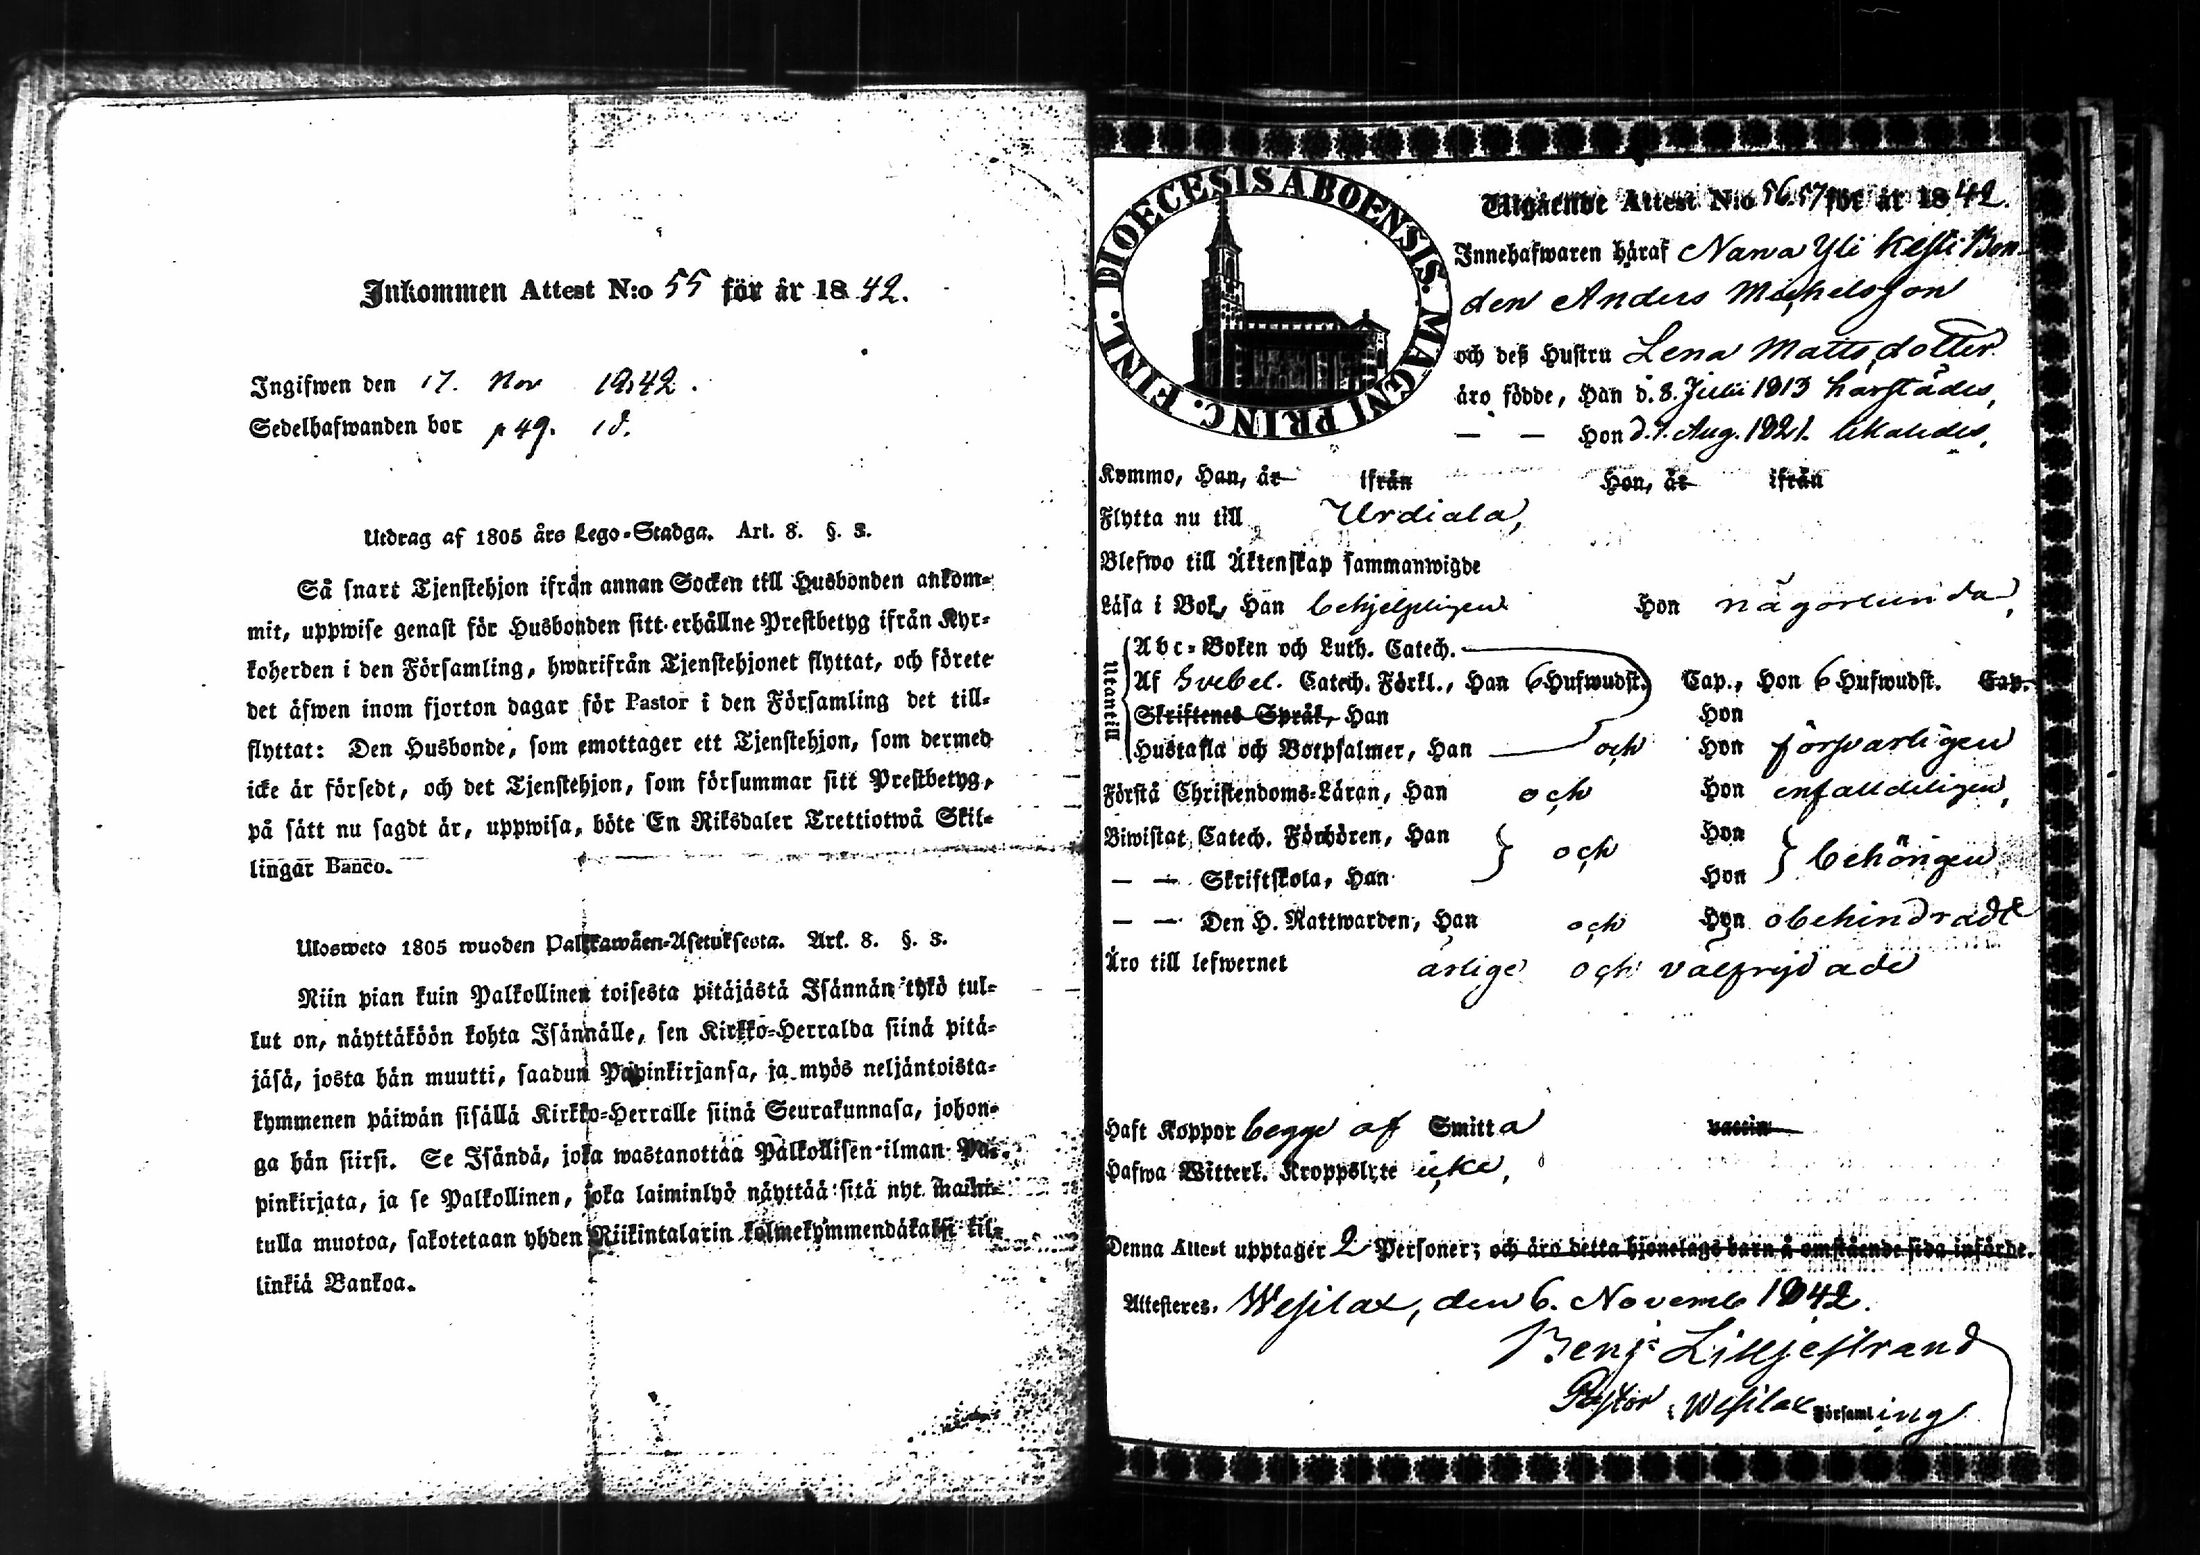 Inkommen Attest N:o 55 för år 1842.
Ingifwen den 17. Nov 1842.
Sedelhafwanden bor p 49. id.
Utdrag af 1805 års Lego-Stadga. Art. 8. §. 3.
Så snart Tjenstehjon ifrån annan Socken till Husbonden ankom-
mit, uppwise genast för Husbonden sitt erhållne Prestbetyg ifrån Kyr-
koherden i den Församling, hwarifrån Tjenstehjonet flyttat, och förete
det äfwen inom fjorton dagar för Pastor i den Församling det till-
flyttat: Den Husbonde, som emottager ett Tjenstehjon, som dermed
icke är försedt, och det Tjenstehjon, som försummar sitt Prestbetyg,
på sätt nu sagdt är, uppwisa, böte En Riksdaler Trettiotwå Skil-
lingar Banco.
Ulosweto 1805 wuoden Palkkawäen-Asetuksesta. Art. 8. §. 3.
Niin pian kuin Palkollinen toisesta pitäjästä Isännän tykö tul-
lut on, näyttäköön kohta Isännälle, sen Kirkko-Herralda siinä pitä-
jäsä, josta hän muutti, saadun Papinkirjansa, ja myös neljäntoista-
kymmenen päiwän sisällä Kirkko-Herralle siinä Seurakunnasa, johon-
ga hän siirsi. Se Isändä, joka wastanottaa Palkollisen ilman Pa-
pinkirjata, ja se Palkollinen, joka laiminlyö näyttää sitä nyt maini-
tulla muotoa, sakotetaan yhden Riikintalarin kolmekymmendäkaksi kil-
linkiä Bankoa.
DIOECESIS ABOENSIS. MAGNI PRINC. FINL.
Utgående Attest N:o 56.57 för år 1842.
Innehafwaren häraf Narva Yli Kesti Bon-
den Anders Michelsson
och deß Hustru Lena Mattsdotter
äro födde, Han d. 8. Julii 1813 härstädes,
— — Hon d. 7. Aug. 1821. likaledes,
Kommo, Han, år ifrån Hon, år ifrån
Flytta nu till Urdiala,
Blefwo till Äktenskap sammanwigde
Läsa i Bok, Han behjelpligen Hon någorlunda,
Utantill
Abc-Boken och Luth. Catech.
Af Svebel. Catech. Förkl., Han 6 Hufwudst. Cap., Hon 6 Hufwudst. Cap.
Skriftenes Språk, Han Hon
Hustafla och Botpsalmer, Han och Hon försvarligen
Förstå Christendoms-Läran, Han och Hon enfalldeligen,
Biwistat Catech. Förhören, Han och Hon behörigen
— — Skriftskola, Han Hon
— — Den H. Nattwarden, Han och Hon obehindrade
Äro till lefwernet ärlige och välfrejdade
Haft Koppor begge af Smitta vaccin
Hafwa Witterl. Kroppslyte icke,
Denna Attest upptager 2 Personer; och äro detta hjonelags barn å omstående sida införde.
Attesteras. Wesilax, den 6. Novemb 1842.
Benj: Lilljestrand
Pastor i Wesilax Församling